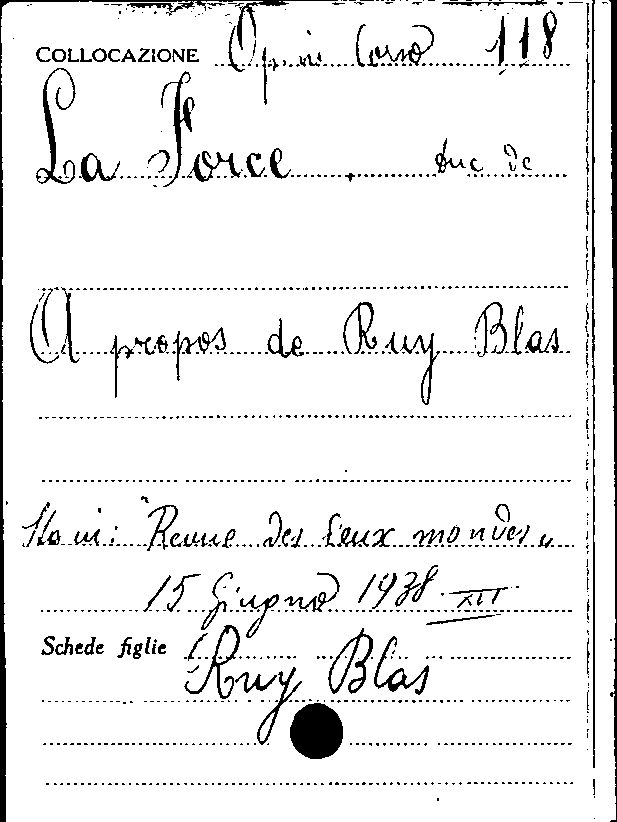 COLLOCAZIONE Op. in Corso 118
La Force. duc de
A propos de Ruy Blas
Sta in: "Revue des Deux mondes"
15 Giugno 1938 - XVI
Schede figlie Ruy Blas